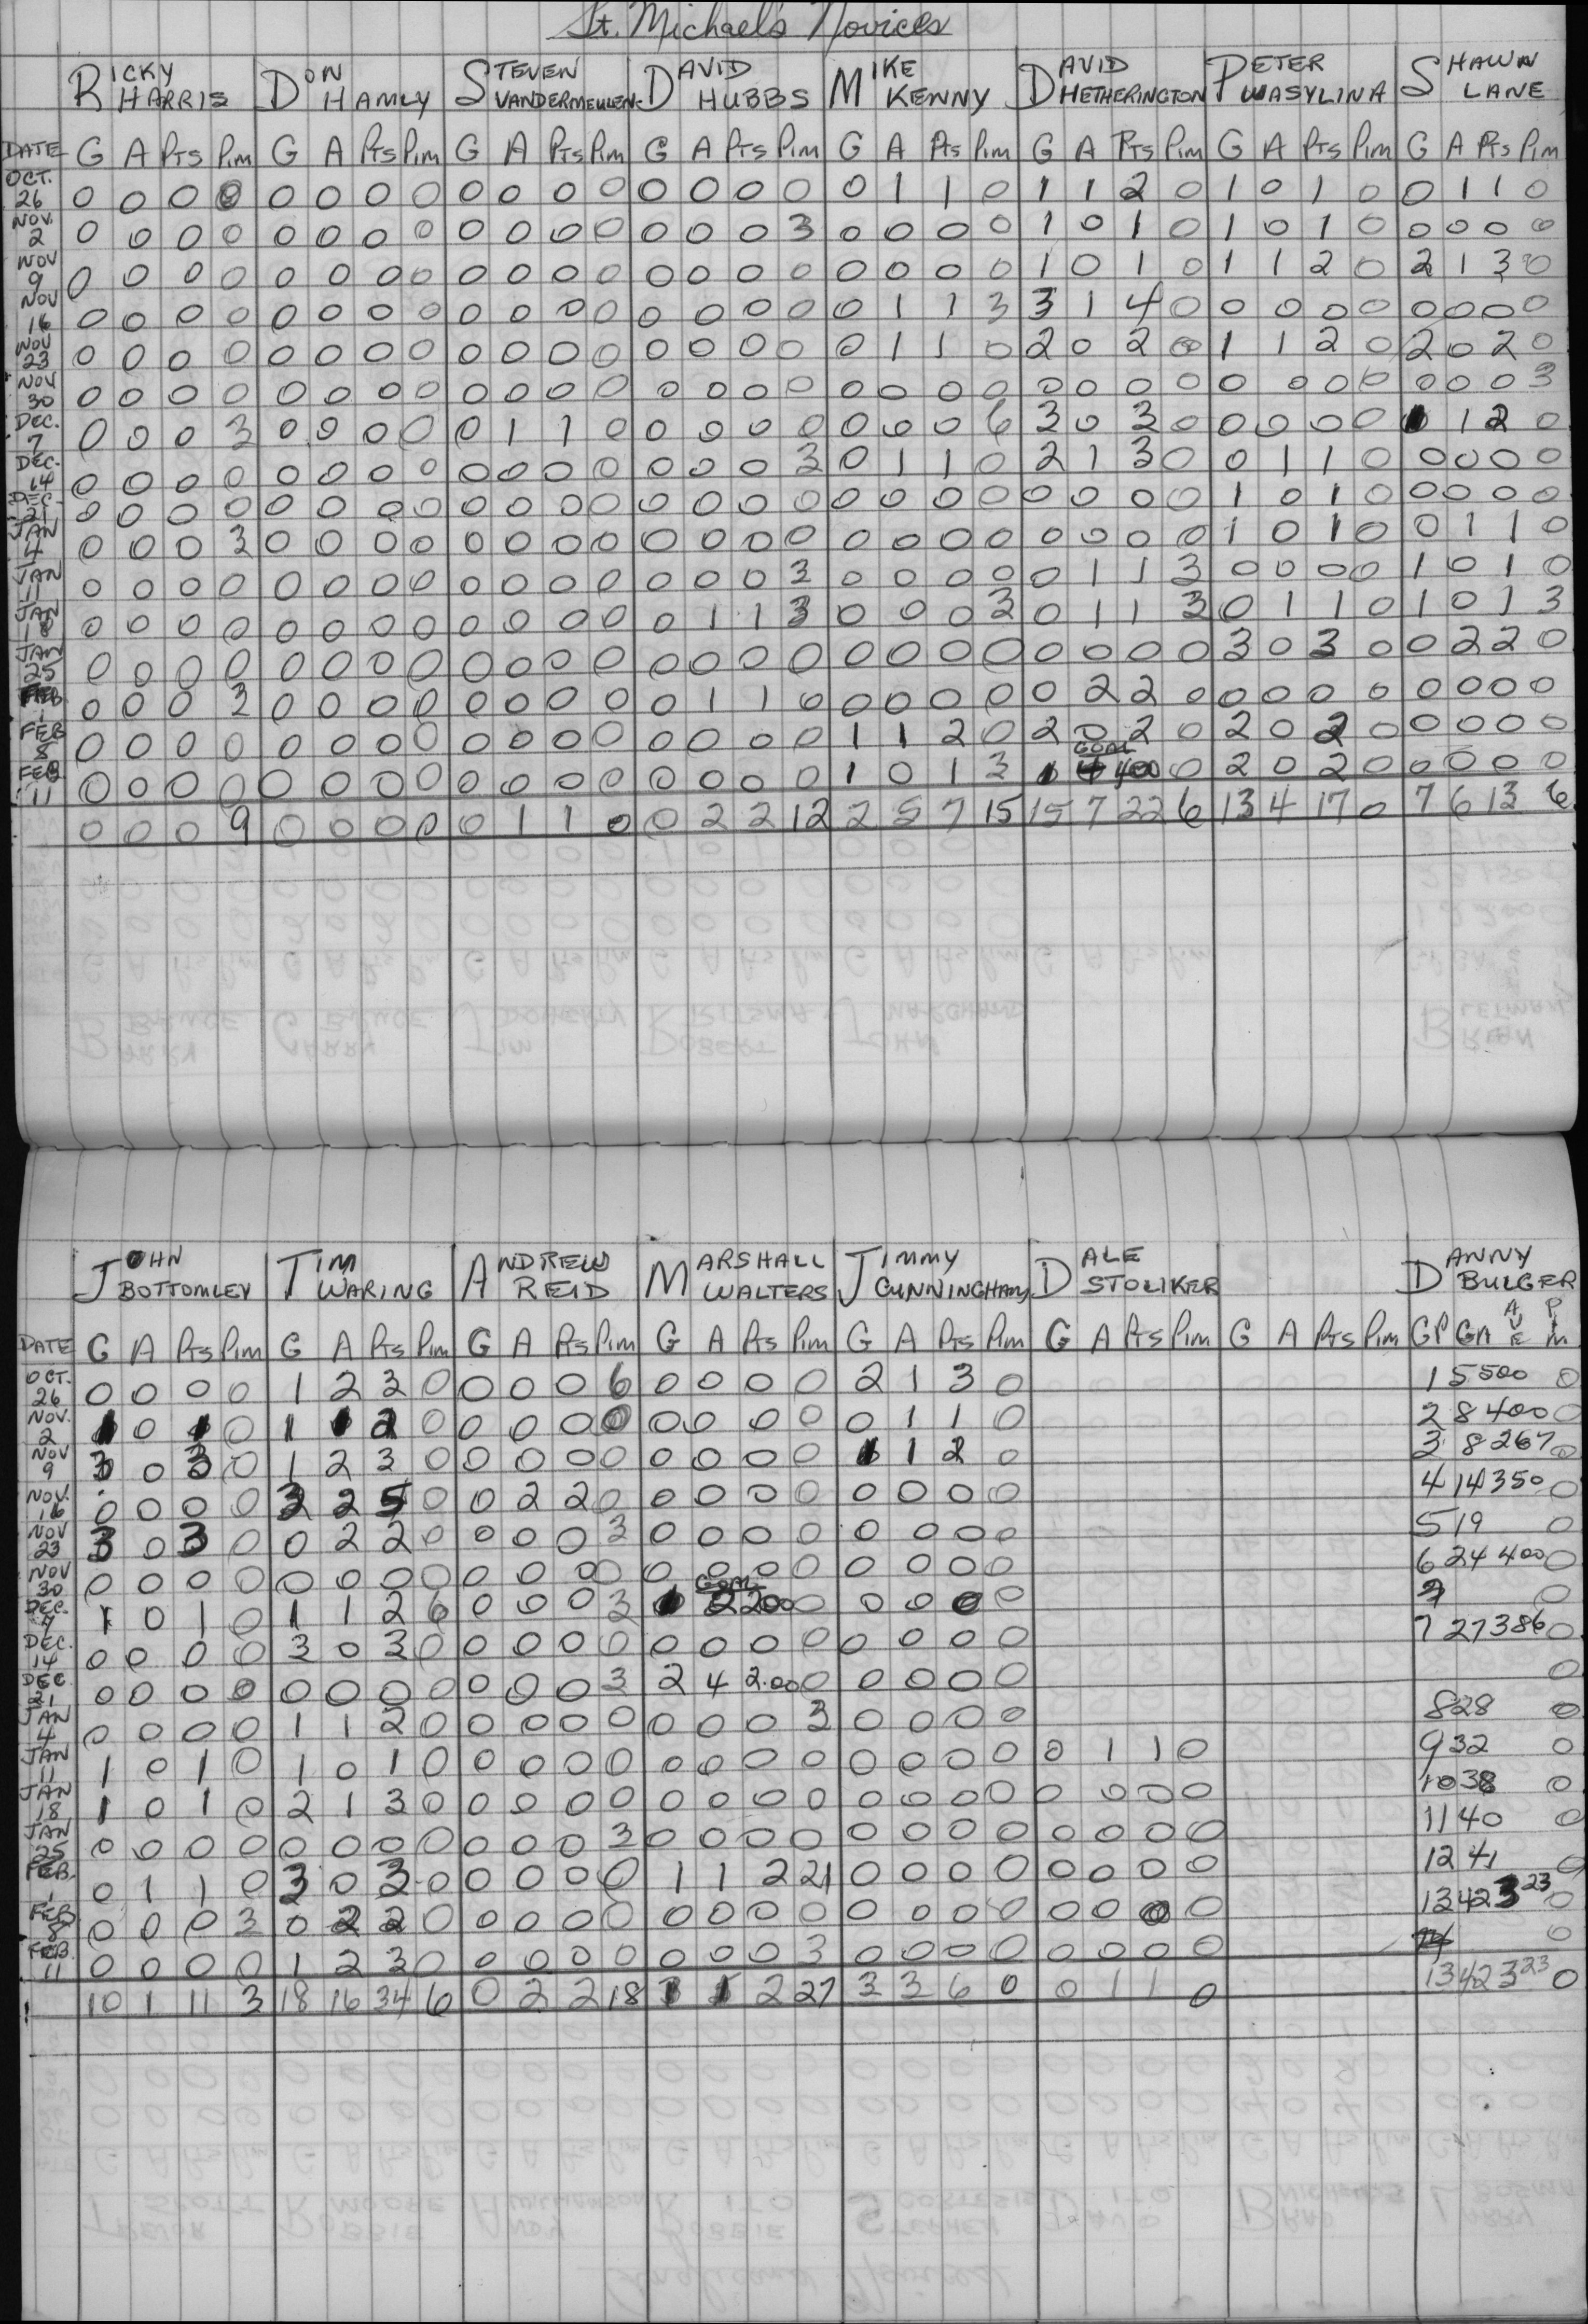 St. Michael's Novices
RICKY HARRIS DON HAMLY STEVEN VANDERMEULEN DAVID HUBBS MIKE KENNY DAVID HETHERINGTON PETER WASYLINA SHAWN LANE
DATE G A Pts Pim G A Pts Pim G A Pts Pim G A Pts Pim G A Pts Pim G A Pts Pim G A Pts Pim G A Pts Pim
OCT. 26 0 0 0 0 0 0 0 0 0 0 0 0 0 0 0 0 0 1 1 0 1 1 2 0 1 0 1 0 0 1 1 0
NOV. 2 0 0 0 0 0 0 0 0 0 0 0 0 0 0 0 3 0 0 0 0 1 0 1 0 1 0 1 0 0 0 0 0
NOV 9 0 0 0 0 0 0 0 0 0 0 0 0 0 0 0 0 0 0 0 0 1 0 1 0 1 1 2 0 2 1 3 0
NOV 16 0 0 0 0 0 0 0 0 0 0 0 0 0 0 0 0 0 1 1 3 3 1 4 0 0 0 0 0 0 0 0 0
NOV 23 0 0 0 0 0 0 0 0 0 0 0 0 0 0 0 0 0 1 1 0 2 0 2 0 1 1 2 0 2 0 2 0
NOV 30 0 0 0 0 0 0 0 0 0 0 0 0 0 0 0 0 0 0 0 0 0 0 0 0 0 0 0 0 0 0 0 3
DEC. 7 0 0 0 3 0 0 0 0 0 1 1 0 0 0 0 0 0 0 0 6 3 0 3 0 0 0 0 0 1 1 2 0
DEC. 14 0 0 0 0 0 0 0 0 0 0 0 0 0 0 0 3 0 1 1 0 2 1 3 0 0 1 1 0 0 0 0 0
DEC. 21 0 0 0 0 0 0 0 0 0 0 0 0 0 0 0 0 0 0 0 0 0 0 0 0 1 0 1 0 0 0 0 0
JAN 4 0 0 0 3 0 0 0 0 0 0 0 0 0 0 0 0 0 0 0 0 0 0 0 0 1 0 1 0 0 1 1 0
JAN 11 0 0 0 0 0 0 0 0 0 0 0 0 0 0 0 3 0 0 0 0 0 1 1 3 0 0 0 0 1 0 1 0
JAN 18 0 0 0 0 0 0 0 0 0 0 0 0 0 1 1 3 0 0 0 3 0 1 1 3 0 1 1 0 1 0 1 3
JAN 25 0 0 0 0 0 0 0 0 0 0 0 0 0 0 0 0 0 0 0 0 0 0 0 0 3 0 3 0 0 2 2 0
FEB 1 0 0 0 3 0 0 0 0 0 0 0 0 0 1 1 0 0 0 0 0 0 2 2 0 0 0 0 0 0 0 0 0
FEB 8 0 0 0 0 0 0 0 0 0 0 0 0 0 0 0 0 1 1 2 0 2 0 2 0 2 0 2 0 0 0 0 0
GOAL
FEB 11 0 0 0 0 0 0 0 0 0 0 0 0 0 0 0 0 1 0 1 3 1 4 400 0 2 0 2 0 0 0 0 0
0 0 0 9 0 0 0 0 0 1 1 0 0 2 2 12 2 5 7 15 15 7 22 6 13 4 17 0 7 6 13 6
JOHN BOTTOMLEY TIM WARING ANDREW REID MARSHALL WALTERS JIMMY CUNNINGHAM DALE STOLIKER DANNY BULGER
DATE G A Pts Pim G A Pts Pim G A Pts Pim G A Pts Pim G A Pts Pim G A Pts Pim G A Pts Pim GP GA AVE PIM
OCT. 26 0 0 0 0 1 2 3 0 0 0 0 6 0 0 0 0 2 1 3 0 1 5 500 0
NOV. 2 1 0 1 0 1 1 2 0 0 0 0 0 0 0 0 0 0 1 1 0 2 8 400 0
NOV 9 3 0 3 0 1 2 3 0 0 0 0 0 0 0 0 0 1 1 2 0 3 8 267 0
NOV. 16 0 0 0 0 3 2 5 0 0 2 2 0 0 0 0 0 0 0 0 0 4 14 350 0
NOV 23 3 0 3 0 0 2 2 0 0 0 0 3 0 0 0 0 0 0 0 0 5 19 0
NOV 30 0 0 0 0 0 0 0 0 0 0 0 0 0 0 0 0 0 0 0 0 6 24 400 0
GOAL
DEC. 7 1 0 1 0 1 1 2 6 0 0 0 3 1 2 200 0 0 0 0 0 7 0
DEC. 14 0 0 0 0 3 0 3 0 0 0 0 0 0 0 0 0 0 0 0 0 7 27 386 0
DEC 21 0 0 0 0 0 0 0 0 0 0 0 3 2 4 2.00 0 0 0 0 0 0
JAN 4 0 0 0 0 1 1 2 0 0 0 0 0 0 0 0 3 0 0 0 0 8 28 0
JAN 11 1 0 1 0 1 0 1 0 0 0 0 0 0 0 0 0 0 0 0 0 0 1 1 0 9 32 0
JAN 18 1 0 1 0 2 1 3 0 0 0 0 0 0 0 0 0 0 0 0 0 0 0 0 0 10 38 0
JAN 25 0 0 0 0 0 0 0 0 0 0 0 3 0 0 0 0 0 0 0 0 0 0 0 0 11 40 0
FEB. 1 0 1 1 0 3 0 3 0 0 0 0 0 1 1 2 21 0 0 0 0 0 0 0 0 12 41 0
FEB 8 0 0 0 3 0 2 2 0 0 0 0 0 0 0 0 0 0 0 0 0 0 0 0 0 13 42 3 23 0
FEB. 11 0 0 0 0 1 2 3 0 0 0 0 0 0 0 0 3 0 0 0 0 0 0 0 0 14 0
10 1 11 3 18 16 34 6 0 2 2 18 1 1 2 27 3 3 6 0 0 1 1 0 13 42 3 23 0